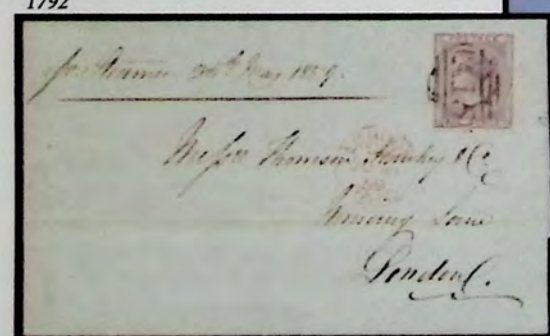 1792
POSTAGE
per Steamer 26th May 1859.
Messrs Thomson Hankey & Co
Mincing Lane
London